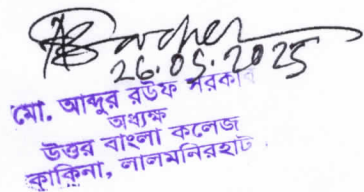 26.05.2025
মো. আব্দুর রউফ সরকার
অধ্যক্ষ
উত্তর বাংলা কলেজ
কাকিনা, লালমনিরহাট